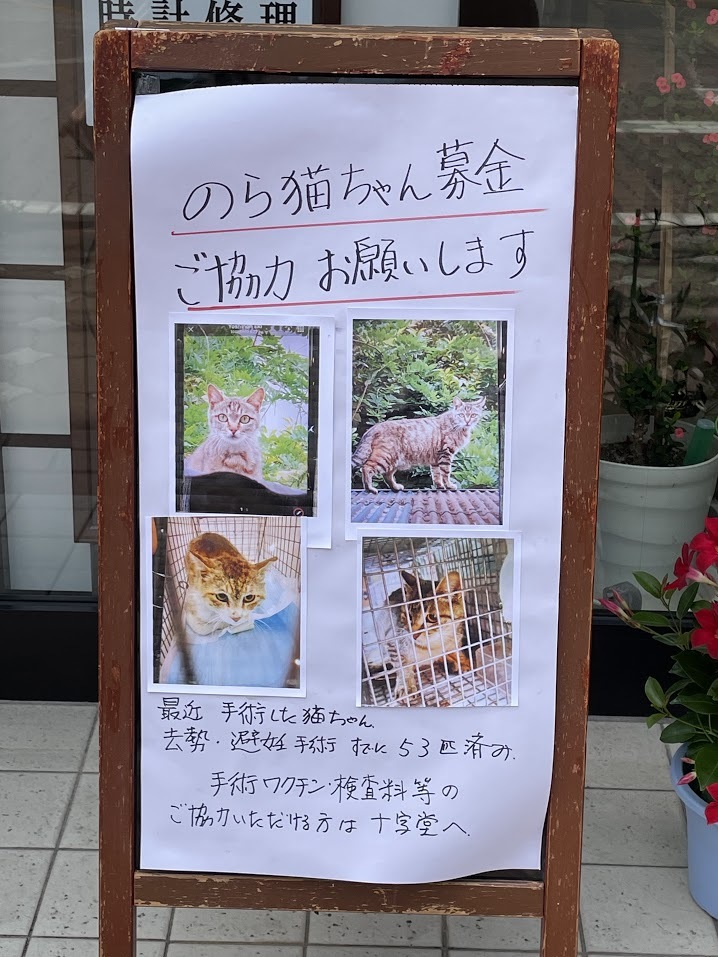 時計修理
のら猫ちゃん募金
ご協力 お願いします
最近 手術した猫ちゃん.
去勢・避妊手術 すでに 53匹済み.
手術ワクチン・検査料等の
ご協力いただける方は 十字堂へ.